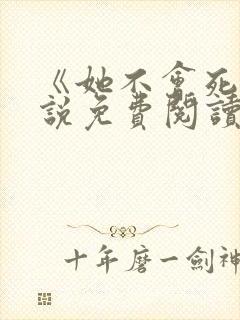 《她不會死
說免費閱讀
十年磨一劍神